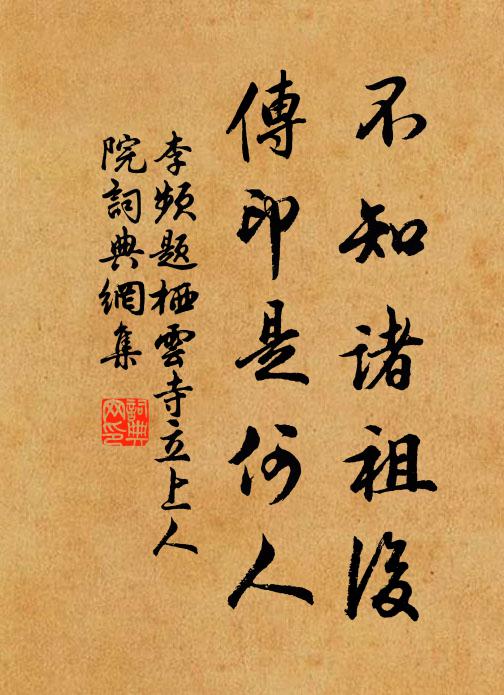 不知諸祖後
傳印是何人
李頻題栖雲寺立上人
院詞典網集
詞典
网印